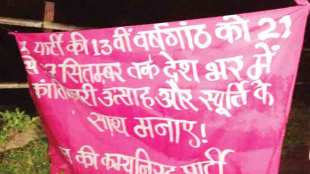 पार्टी की 13वीं वर्षगांठ को 21
सितम्बर तक देश भर में
क्रांतिकारी उत्साह और स्फूर्ति के
साथ मनाए!
की कम्युनिस्ट पार्टी